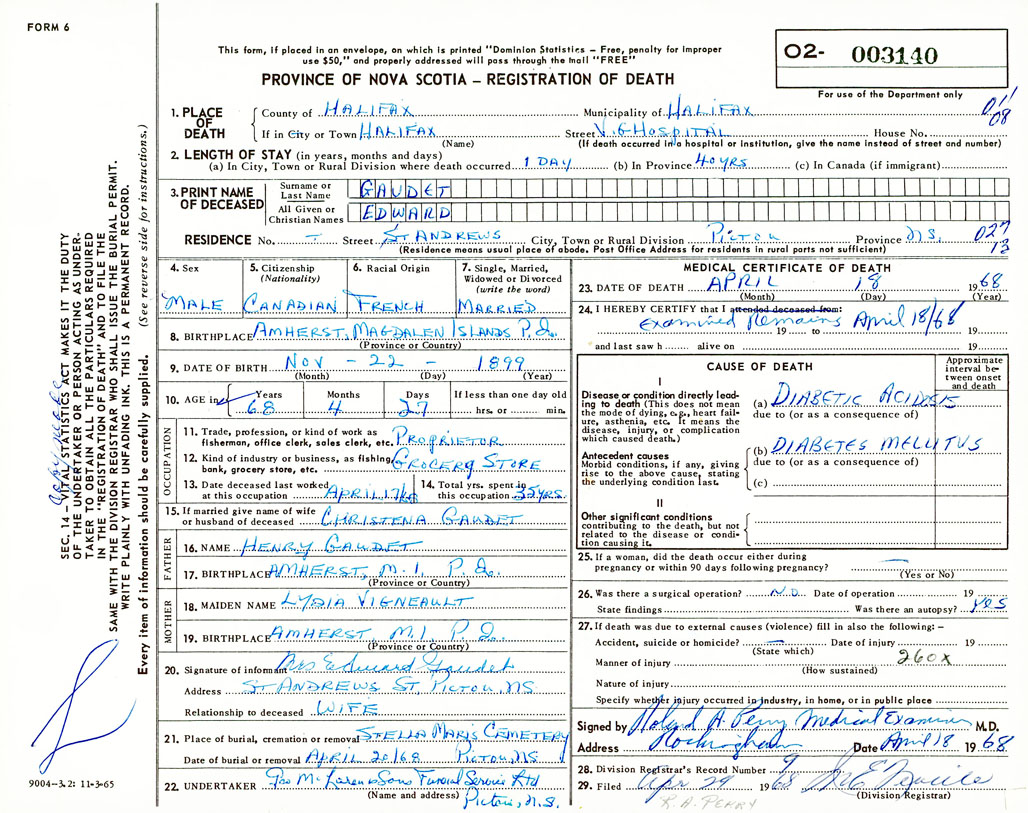 FORM 6
This form, if placed in an envelope, on which is printed "Dominion Statistics – Free, penalty for improper
use $50," and properly addressed will pass through the mail "FREE"
PROVINCE OF NOVA SCOTIA – REGISTRATION OF DEATH
O2- 003140
For use of the Department only
011
08
1. PLACE OF DEATH
County of HALIFAX Municipality of HALIFAX
If in City or Town HALIFAX Street V.G HOSPITAL House No.
(Name) (If death occurred in a hospital or institution, give the name instead of street and number)
2. LENGTH OF STAY (in years, months and days)
(a) In City, Town or Rural Division where death occurred 1 DAY (b) In Province 40 YRS (c) In Canada (if immigrant)
3. PRINT NAME OF DECEASED
Surname or Last Name GAUDET
All Given or Christian Names EDWARD
RESIDENCE No. – Street ST ANDREWS City, Town or Rural Division PICTOU Province N.S. 027
13
(Residence means usual place of abode. Post Office Address for residents in rural parts not sufficient)
4. Sex MALE
5. Citizenship (Nationality) CANADIAN
6. Racial Origin FRENCH
7. Single, Married, Widowed or Divorced (write the word) MARRIED
8. BIRTHPLACE AMHERST, MAGDALEN ISLANDS P.Q.
(Province or Country)
9. DATE OF BIRTH NOV – 22 – 1899
(Month) (Day) (Year)
10. AGE in Years 68 Months 4 Days 27 If less than one day old
hrs. or min.
OCCUPATION
11. Trade, profession, or kind of work as
fisherman, office clerk, sales clerk, etc. PROPRIETOR
12. Kind of industry or business, as fishing,
bank, grocery store, etc. GROCERY STORE
13. Date deceased last worked
at this occupation APRIL 17/68
14. Total yrs. spent in
this occupation 35 YRS.
15. If married give name of wife
or husband of deceased CHRISTENA GAUDET
FATHER
16. NAME HENRY GAUDET
17. BIRTHPLACE AMHERST, M.I. P.Q.
(Province or Country)
MOTHER
18. MAIDEN NAME LYDIA VIGNEAULT
19. BIRTHPLACE AMHERST, M.I. P.Q.
(Province or Country)
20. Signature of informant Mrs Edward Gaudet
Address ST ANDREWS ST. PICTOU, NS
Relationship to deceased WIFE
21. Place of burial, cremation or removal STELLA MARIS CEMETERY
Date of burial or removal APRIL 20/68 PICTOU, NS
22. UNDERTAKER Geo McLaren & Sons Funeral Service Ltd
(Name and address) Pictou, N.S.
MEDICAL CERTIFICATE OF DEATH
23. DATE OF DEATH APRIL 18 1968
(Month) (Day) (Year)
24. I HEREBY CERTIFY that I attended deceased from:
Examined Remains April 18/68
19 to 19
and last saw h alive on 19
CAUSE OF DEATH
Approximate interval between onset and death
I
Disease or condition directly leading to death (This does not mean the mode of dying, e.g., heart failure, asthenia, etc. It means the disease, injury, or complication which caused death.)
(a) DIABETIC ACIDOSIS
due to (or as a consequence of)
Antecedent causes
Morbid conditions, if any, giving rise to the above cause, stating the underlying condition last.
(b) DIABETES MELLITUS
due to (or as a consequence of)
(c)
II
Other significant conditions
contributing to the death, but not related to the disease or condition causing it.
25. If a woman, did the death occur either during
pregnancy or within 90 days following pregnancy? –
(Yes or No)
26. Was there a surgical operation? NO Date of operation 19
State findings Was there an autopsy? Yes
27. If death was due to external causes (violence) fill in also the following: –
Accident, suicide or homicide? – Date of injury 19
(State which)
Manner of injury 260X
(How sustained)
Nature of injury
Specify whether injury occurred in industry, in home, or in public place
Signed by Roland A. Perry Medical Examiner M.D.
Address Rockingham Date April 18 1968
28. Division Registrar's Record Number 9
29. Filed Apr 29 1968
(Division Registrar)
R.A. PERRY
SEC. 14 – VITAL STATISTICS ACT MAKES IT THE DUTY
OF THE UNDERTAKER OR PERSON ACTING AS UNDER-
TAKER TO OBTAIN ALL THE PARTICULARS REQUIRED
IN THE "REGISTRATION OF DEATH" AND TO FILE THE
SAME WITH THE DIVISION REGISTRAR WHO SHALL ISSUE THE BURIAL PERMIT.
WRITE PLAINLY WITH UNFADING INK. THIS IS A PERMANENT RECORD.
Every item of information should be carefully supplied. (See reverse side for instructions.)
9004–3.2: 11-3-65